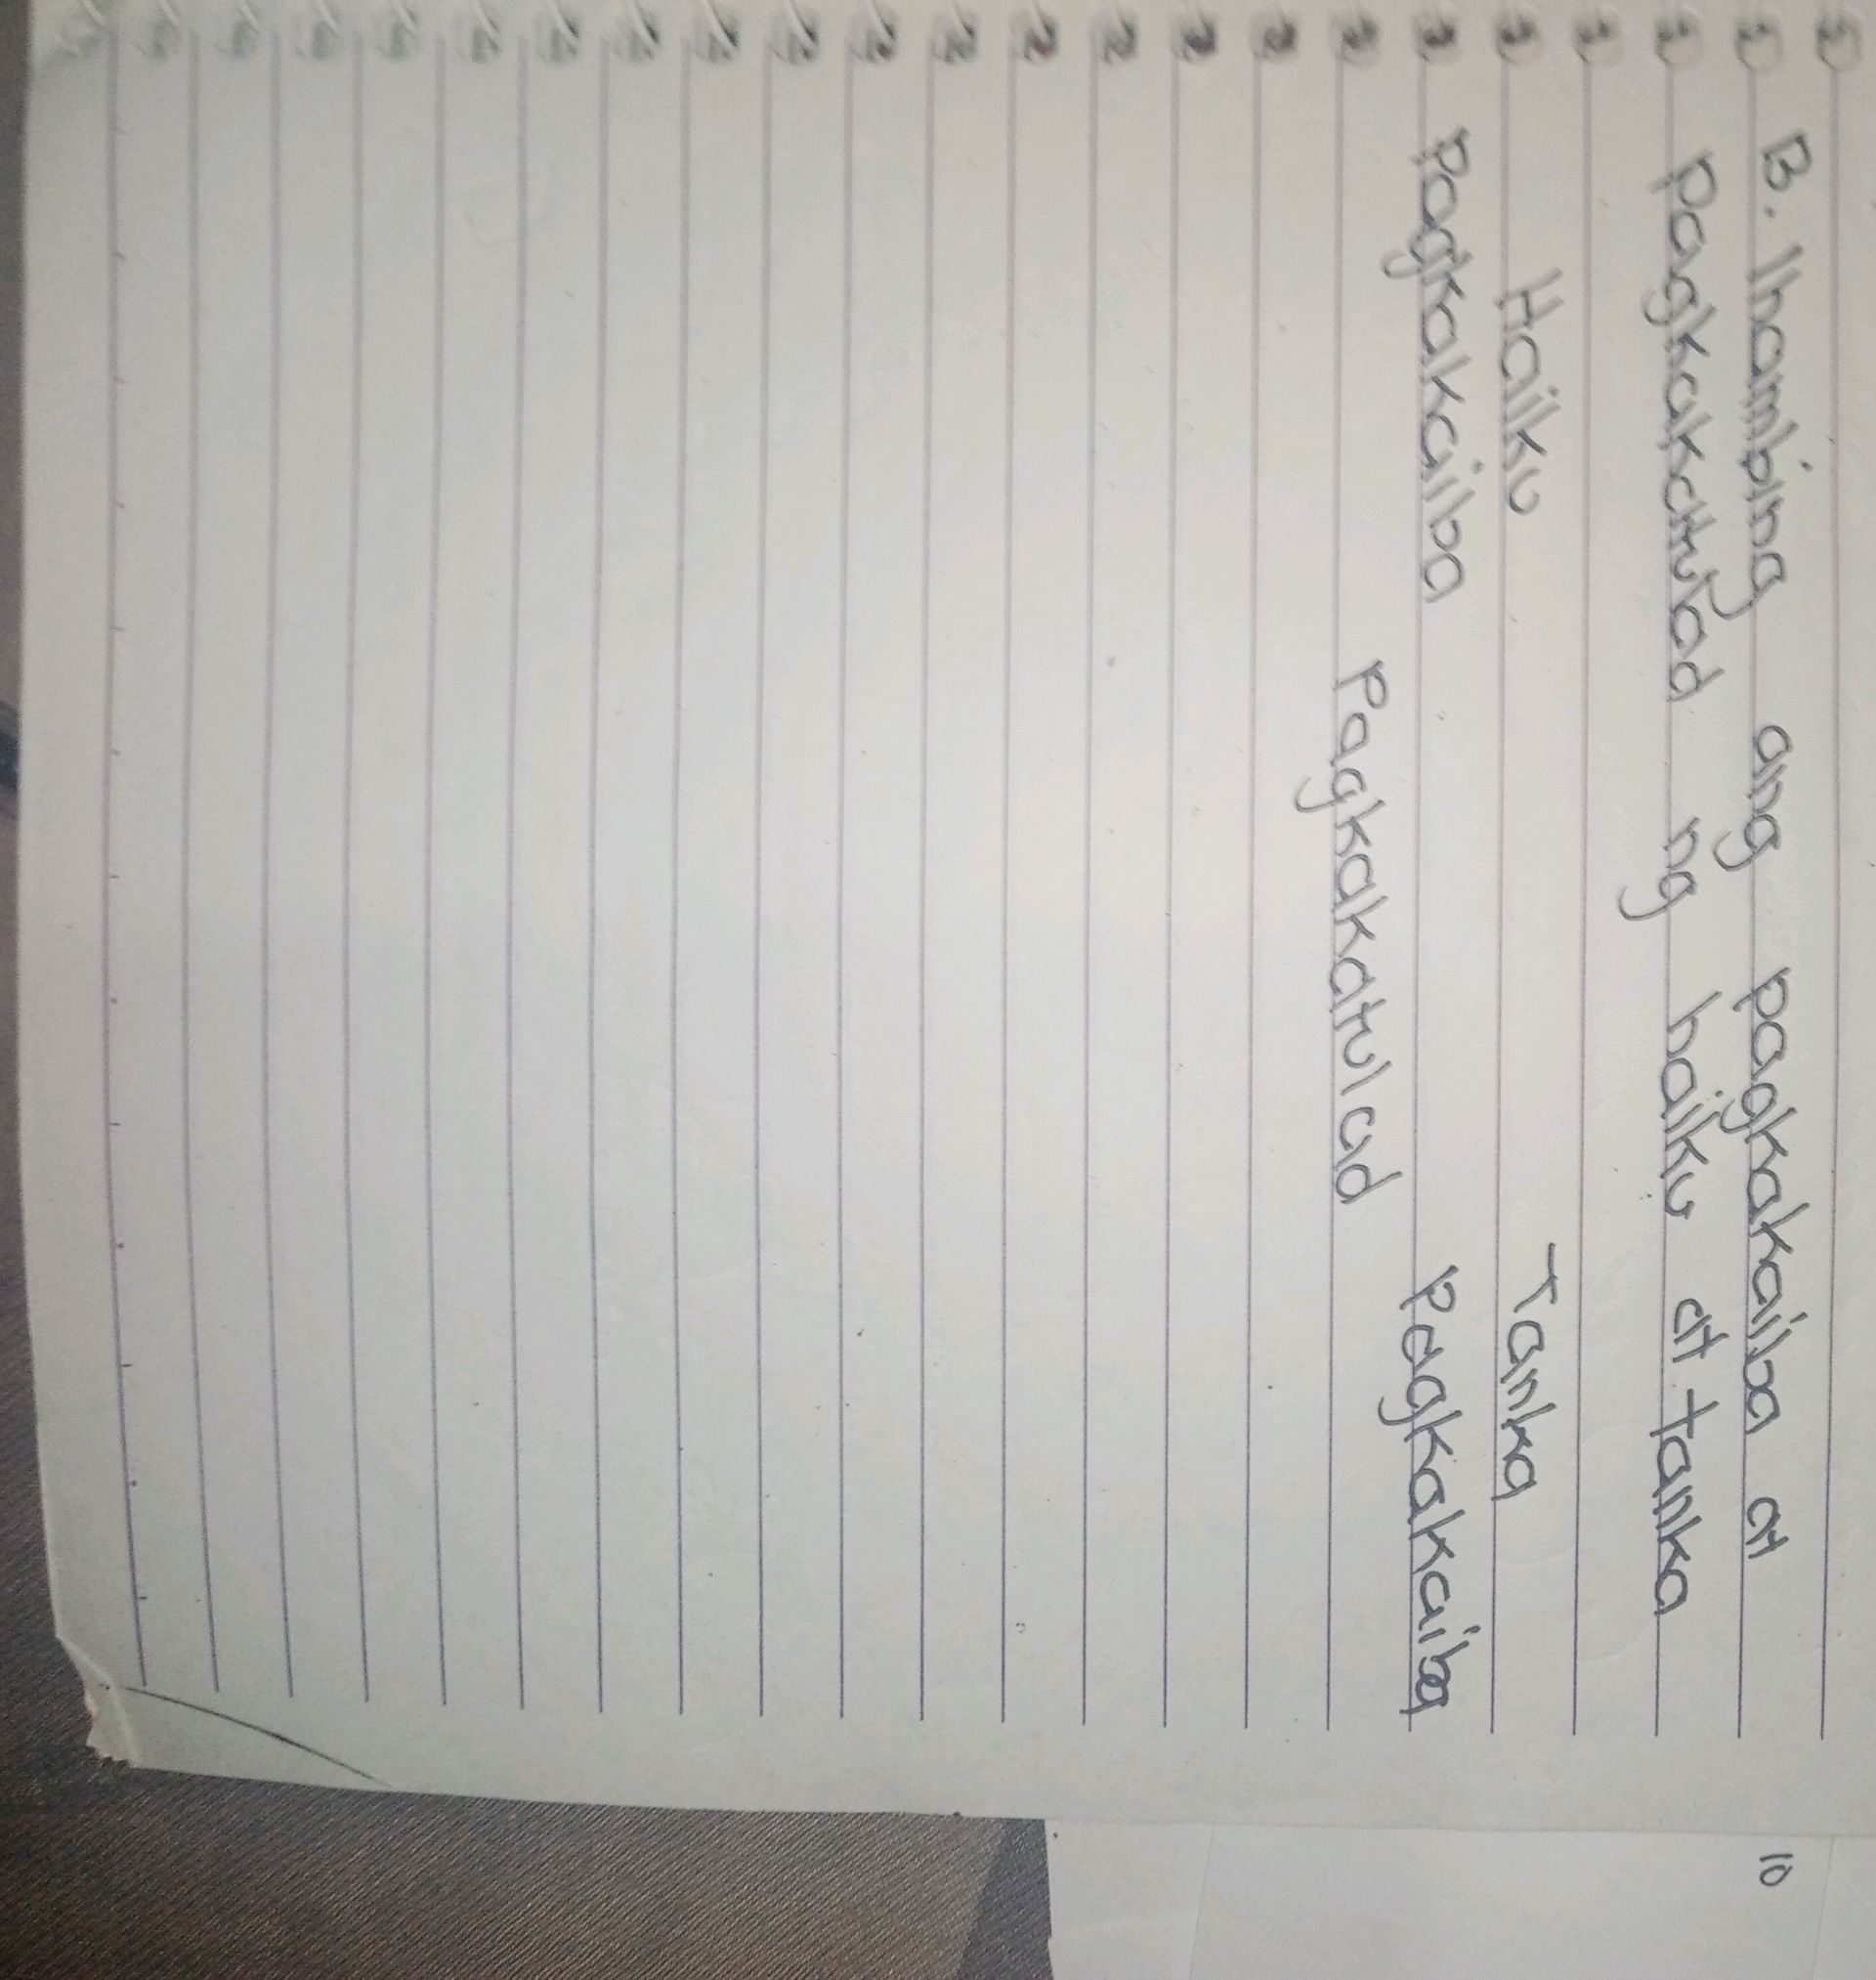 B. Ihambing ang pagkakaiba at
pagkakatulad ng haiku at tanka
Haiku Tanka
Pagkakaiba Pagkakaiba
Pagkakatulad
10